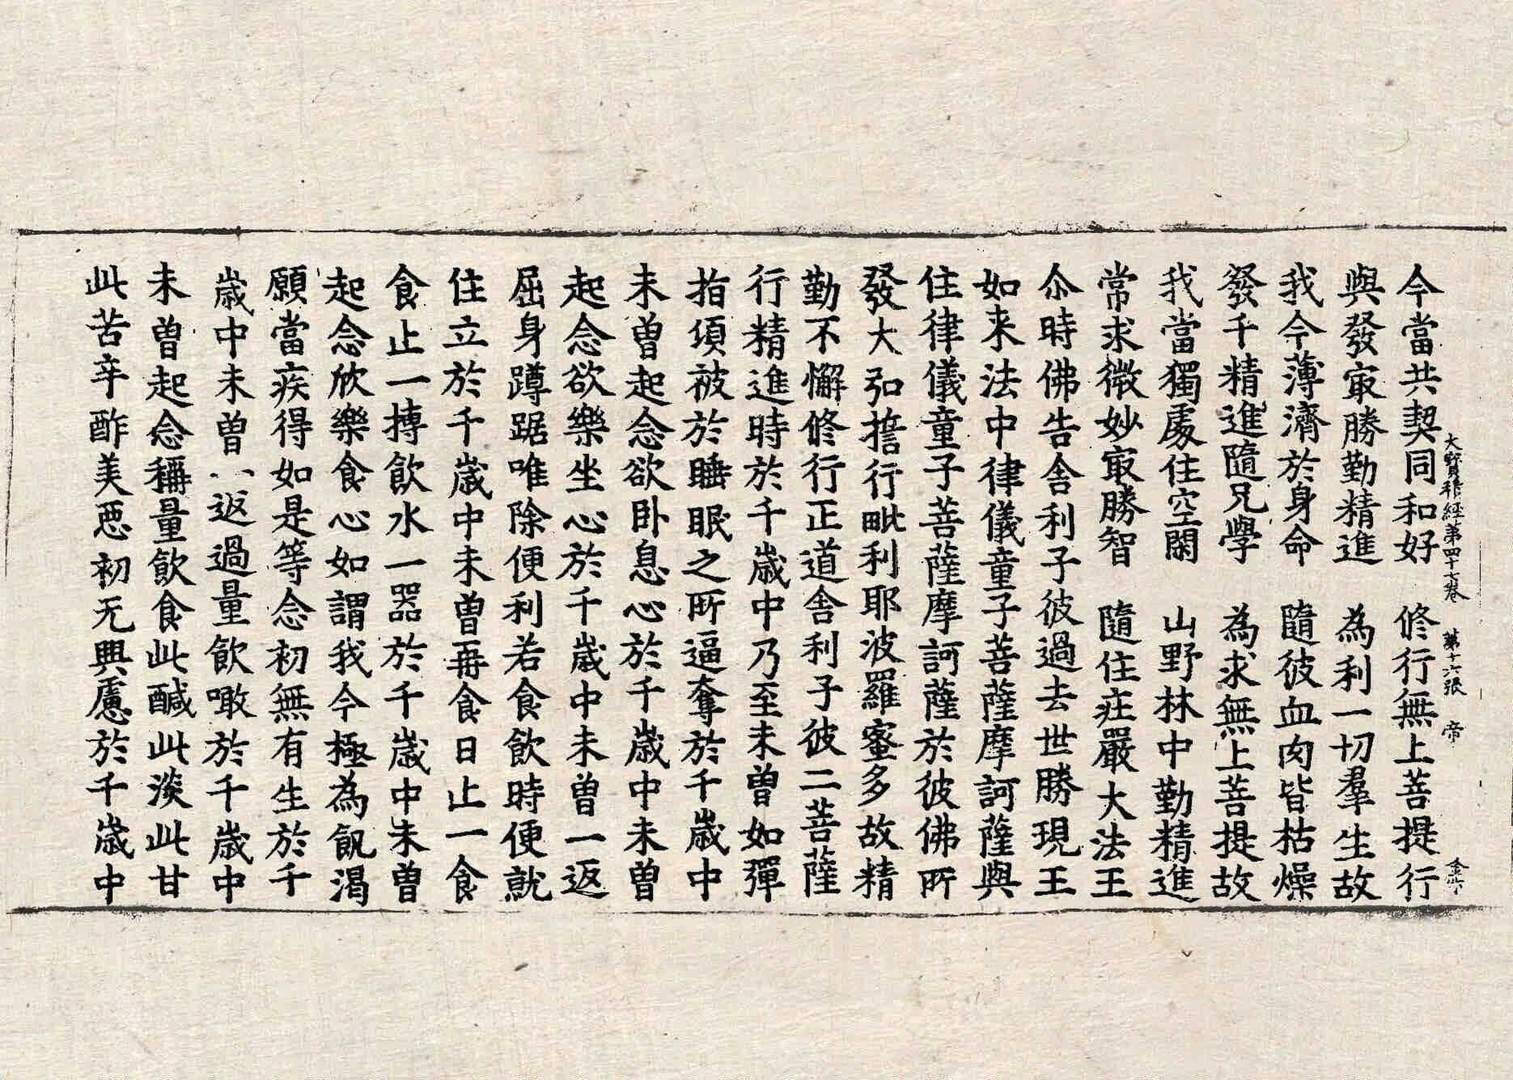 大寶積經第四十七卷 第十六張 帝
今當共契同和好 修行無上菩提行
與發㝡勝勤精進 為利一切羣生故
我今薄濟於身命 隨彼血肉皆枯燥
發千精進隨兄學 為求無上菩提故
我當獨處住空閑 山野林中勤精進
常求微妙㝡勝智 隨住莊嚴大法王
尒時佛告舍利子彼過去世勝現王
如来法中律儀童子菩薩摩訶薩與
住律儀童子菩薩摩訶薩於彼佛所
發大弘誓行毗利耶波羅蜜多故精
勤不懈修行正道舍利子彼二菩薩
行精進時於千歲中乃至未曾如彈
指頃被於睡眠之所逼奪於千歲中
未曾起念欲卧息心於千歲中未曾
起念欲樂坐心於千歲中未曾一返
屈身蹲踞唯除便利若食飲時便就
住立於千歲中未曾再食日止一食
食止一摶飲水一器於千歲中未曾
起念欣樂食心如謂我今極為飢渴
願當疾得如是等念初無有生於千
歲中未曾一返過量飲噉於千歲中
未曾起念稱量飲食此醎此淡此甘
此苦辛酢美惡初无興慮於千歲中